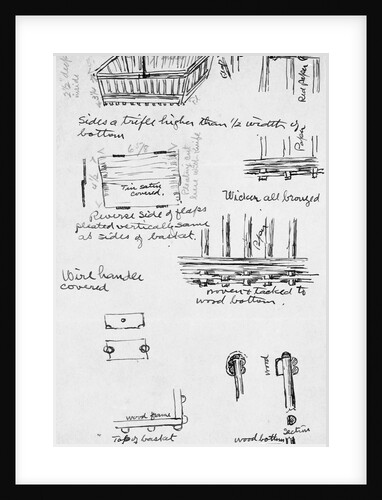 2 1/2" deep
inside
Paper
Red paper
Sides a trifle higher than 1/2 width of
bottom
6 7/8
4 1/2
Tin satin
covered.
Paper
Wicker all bronzed
Reverse side of flaps
pleated vertically same
as sides of basket.
Paper
woven & tacked to
wood bottom.
Wire handle
covered
wood
wood frame
Top of basket
wood bottom
Section